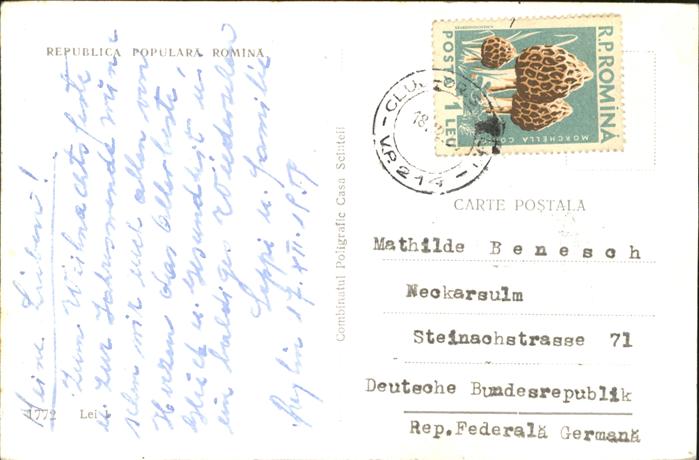 REPUBLICA POPULARĂ ROMÎNĂ
Meine Lieben!
Zum Weihnachtsfeste
u. zur Jahreswende wünschen
wir euch allen von
Herzen das Allerbeste,
Glück u. Gesundheit u.
ein baldiges Wiedersehen
Seppi u. Familie
17.XII.1959
1772 Lei
Combinatul Poligrafic Casa Scînteii
R.P.ROMÎNĂ
POSTA
1 LEU
MORCHELLA
CLUJ
18
VR 214
CARTE POȘTALĂ
Mathilde Benesch
Neckarsulm
Steinachstrasse 71
Deutsche Bundesrepublik
Rep.Federală Germană